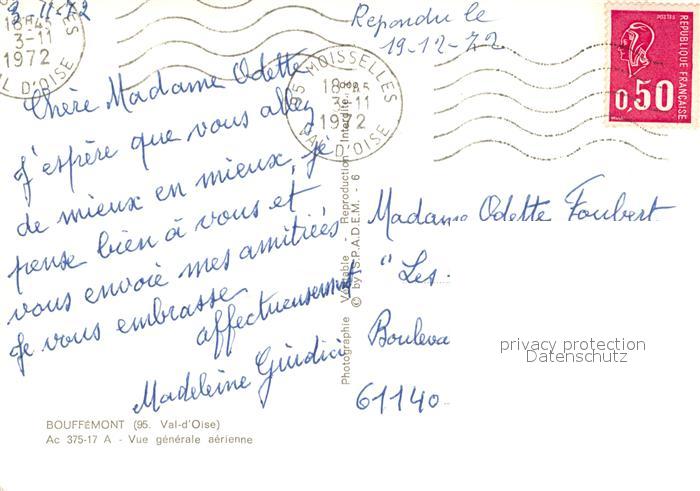 3-11-72
Répondu le
19-12-72
1972
3-11
VAL D'OISE
95 MOISSELLES
18H
3-11
1972
VAL D'OISE
POSTES
REPUBLIQUE FRANÇAISE
0,50
Chère Madame Odette
J'espère que vous allez
de mieux en mieux, je
pense bien à vous et
vous envoie mes amitiées
Je vous embrasse
affectueusement
Madeleine Guidici
Photographie Véritable - Reproduction Interdite
© by S.P.A.D.E.M. - 6
Madame Odette Foubert
"Les
Bouleva
61140
privacy protection
Datenschutz
BOUFFÉMONT (95. Val-d'Oise)
Ac 375-17 A - Vue générale aérienne